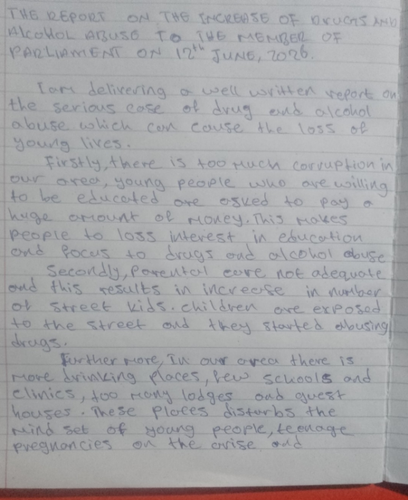 THE REPORT ON THE INCREASE OF DRUGS AND
ALCOHOL ABUSE TO THE MEMBER OF
PARLIAMENT ON 12th JUNE, 2026.
I am delivering a well written report on
the serious case of drug and alcohol
abuse which can cause the loss of
young lives.
Firstly, there is too much corruption in
our area, young people who are willing
to be educated are asked to pay a
huge amount of money. This makes
people to loss interest in education
and focus to drugs and alcohol abuse
Secondly, Parental care not adequate
and this results in increase in number
of street kids. Children are exposed
to the street and they started abusing
drugs.
Further more, In our area there is
more drinking places, few schools and
clinics, too many lodges and guest
houses. These places disturbs the
mind set of young people, teenage
pregnancies on the arise and